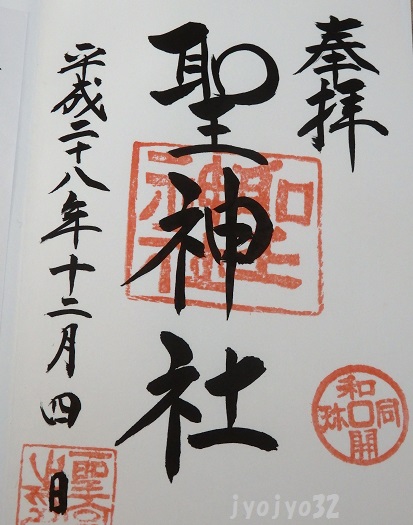 奉拝
聖神社
平成二十八年十二月四日
和同開珎
jyojyo32